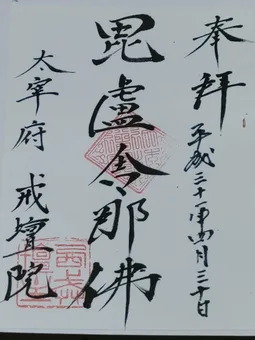 奉拜
平成三十一年四月三十日
毘盧舎那佛
太宰府 戒壇院